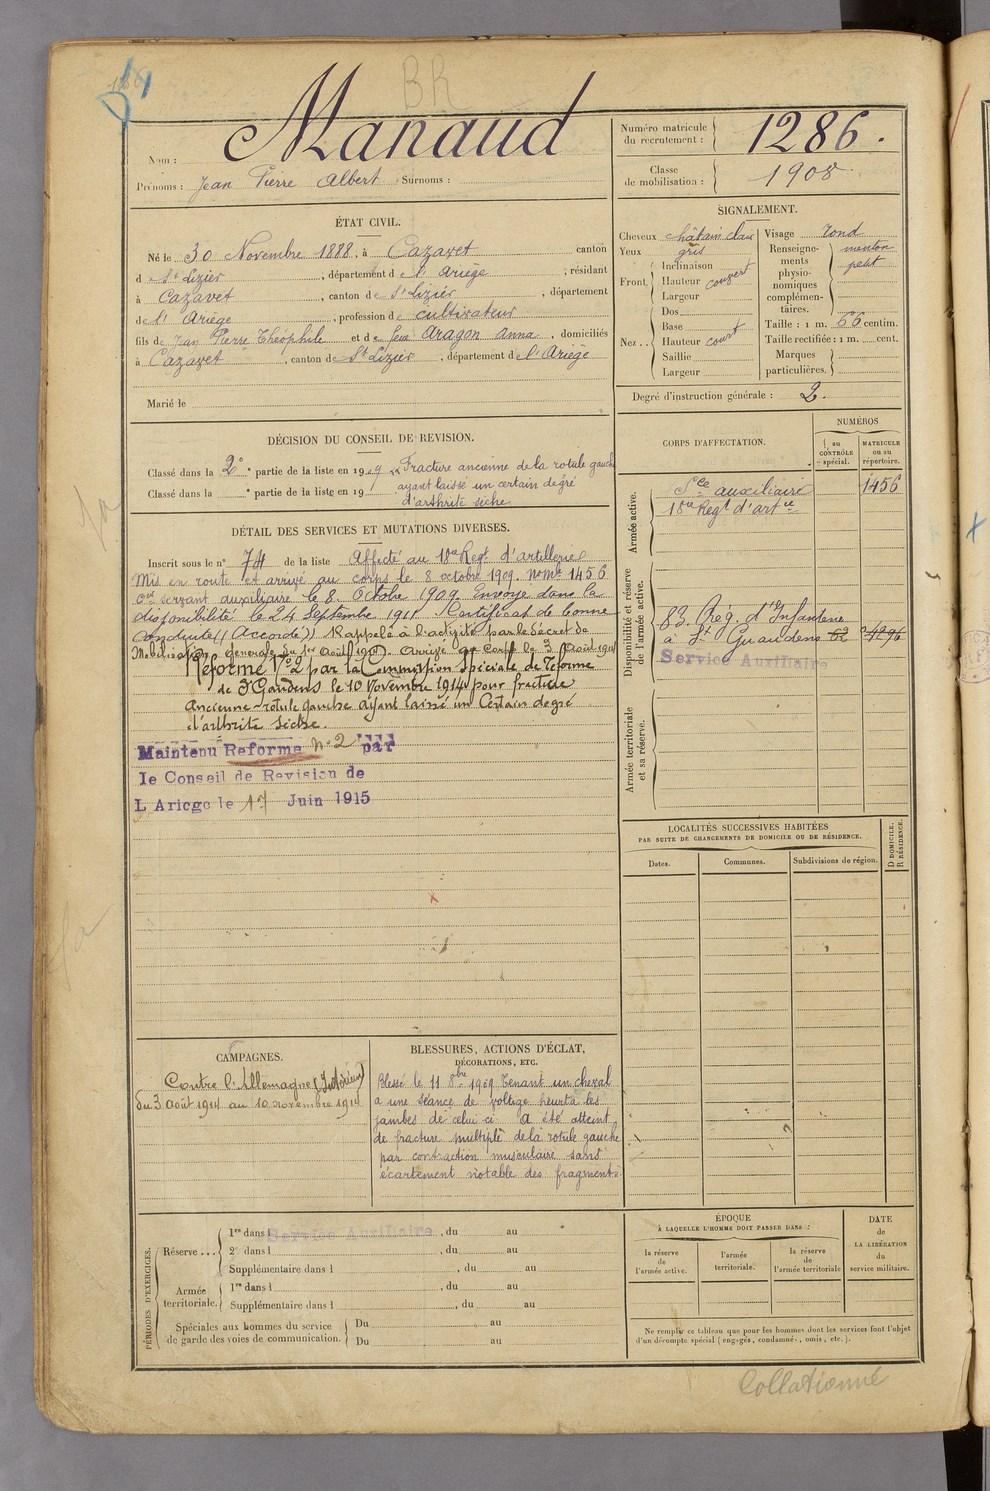 BR
Nom : Manaud
Prénoms : Jean Pierre Albert Surnoms :
Numéro matricule du recrutement : 1286.
Classe de mobilisation : 1908
ÉTAT CIVIL.
Né le 30 Novembre 1888, à Cazavet canton
d e St Lizier, département d e l'Ariège, résidant
à Cazavet, canton de St Lizier, département
de l'Ariège, profession de cultivateur
fils de Jean Pierre Théophile et de feue Aragon Anna, domiciliés
à Cazavet, canton de St Lizier, département de l'Ariège
Marié le
SIGNALEMENT.
Cheveux châtain clair
Yeux gris
Front Inclinaison
Hauteur couvert
Largeur
Nez Dos
Base
Hauteur court
Saillie
Largeur
Visage rond
Renseignements physionomiques complémentaires. menton petit
Taille : 1 m. 66 centim.
Taille rectifiée : 1 m. cent.
Marques particulières.
Degré d'instruction générale : 2.
DÉCISION DU CONSEIL DE REVISION.
Classé dans la 2e partie de la liste en 1909 Fracture ancienne de la rotule gauche
Classé dans la partie de la liste en 19 ayant laissé un certain degré
d'arthrite sèche
DÉTAIL DES SERVICES ET MUTATIONS DIVERSES.
Inscrit sous le n° 74 de la liste Affecté au 18e Regt d'artillerie
Mis en route et arrivé au corps le 8 octobre 1909. nomé 1456
Cer servant auxiliaire le 8 Octobre 1909. Envoyé dans la
disponibilité le 24 Septembre 1911 Certificat de bonne
Conduite (( Accordé )) Rappelé à l'activité par le décret de
Mobilisation générale du 1er Août 1914. Arrivé au Corps le 3 Août 1914
Réformé N° 2 par la Commission Spéciale de Réforme
de St Gaudens le 10 Novembre 1914 pour fracture
Ancienne rotule gauche ayant laissé un Certain degré
d'arthrite sèche.
Maintenu Reforme n° 2 par
le Conseil de Revision de
L Ariege le 17 Juin 1915
CORPS D'AFFECTATION.
NUMÉROS
au CONTRÔLE spécial.
MATRICULE ou au répertoire.
Armée active.
Sce auxiliaire 1456
18e Regt d'artie
Disponibilité et réserve de l'armée active.
83. Rég. d'Infanterie
à St Gaudens
Service Auxiliaire
Armée territoriale et sa réserve.
LOCALITÉS SUCCESSIVES HABITÉES
PAR SUITE DE CHANGEMENTS DE DOMICILE OU DE RÉSIDENCE.
Dates.
Communes.
Subdivisions de région.
D DOMICILE.
R RÉSIDENCE.
CAMPAGNES.
Contre l'Allemagne (Intérieur)
du 3 août 1914 au 10 novembre 1914
BLESSURES, ACTIONS D'ÉCLAT,
DÉCORATIONS, ETC.
Blessé le 11 8bre 1909 Tenant un cheval
a une séance de voltige heurta les
jambes de celui-ci a été atteint
de fracture multiple de la rotule gauche
par contraction musculaire sans
écartement notable des fragments
PÉRIODES D'EXERCICES.
Réserve
1re dans l Service Auxiliaire, du au
2e dans l , du au
Supplémentaire dans l , du au
Armée territoriale.
1re dans l , du au
Supplémentaire dans l , du au
Spéciales aux hommes du service de garde des voies de communication.
Du au
Du au
ÉPOQUE
À LAQUELLE L'HOMME DOIT PASSER DANS :
la réserve de l'armée active.
l'armée territoriale.
la réserve de l'armée territoriale
DATE de LA LIBÉRATION du service militaire.
Ne remplir ce tableau que pour les hommes dont les services font l'objet
d'un décompte spécial (engagés, condamnés, omis, etc.).
Collationné